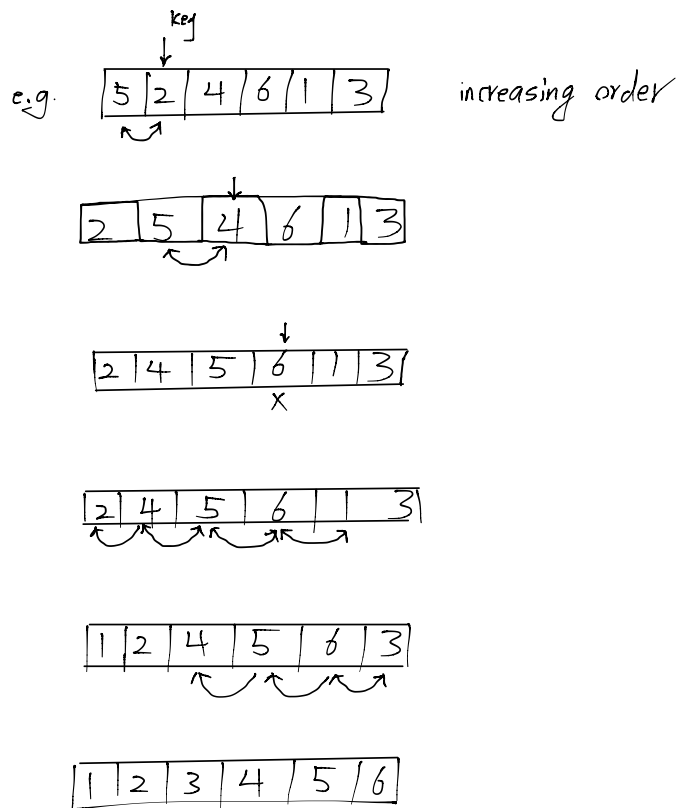 key
e.g. 5 2 4 6 1 3 increasing order
2 5 4 6 1 3
2 4 5 6 1 3
x
2 4 5 6 1 3
1 2 4 5 6 3
1 2 3 4 5 6